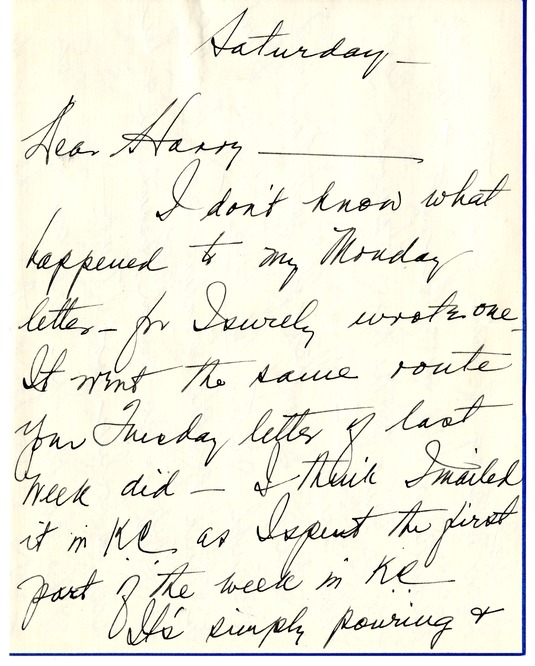 Saturday—
Dear Harry —
I don't know what
happened to my Monday
letter— for I surely wrote one.
It went the same route
your Tuesday letter of last
week did — I think I mailed
it in KC as I spent the first
part of the week in KC
It's simply pouring &